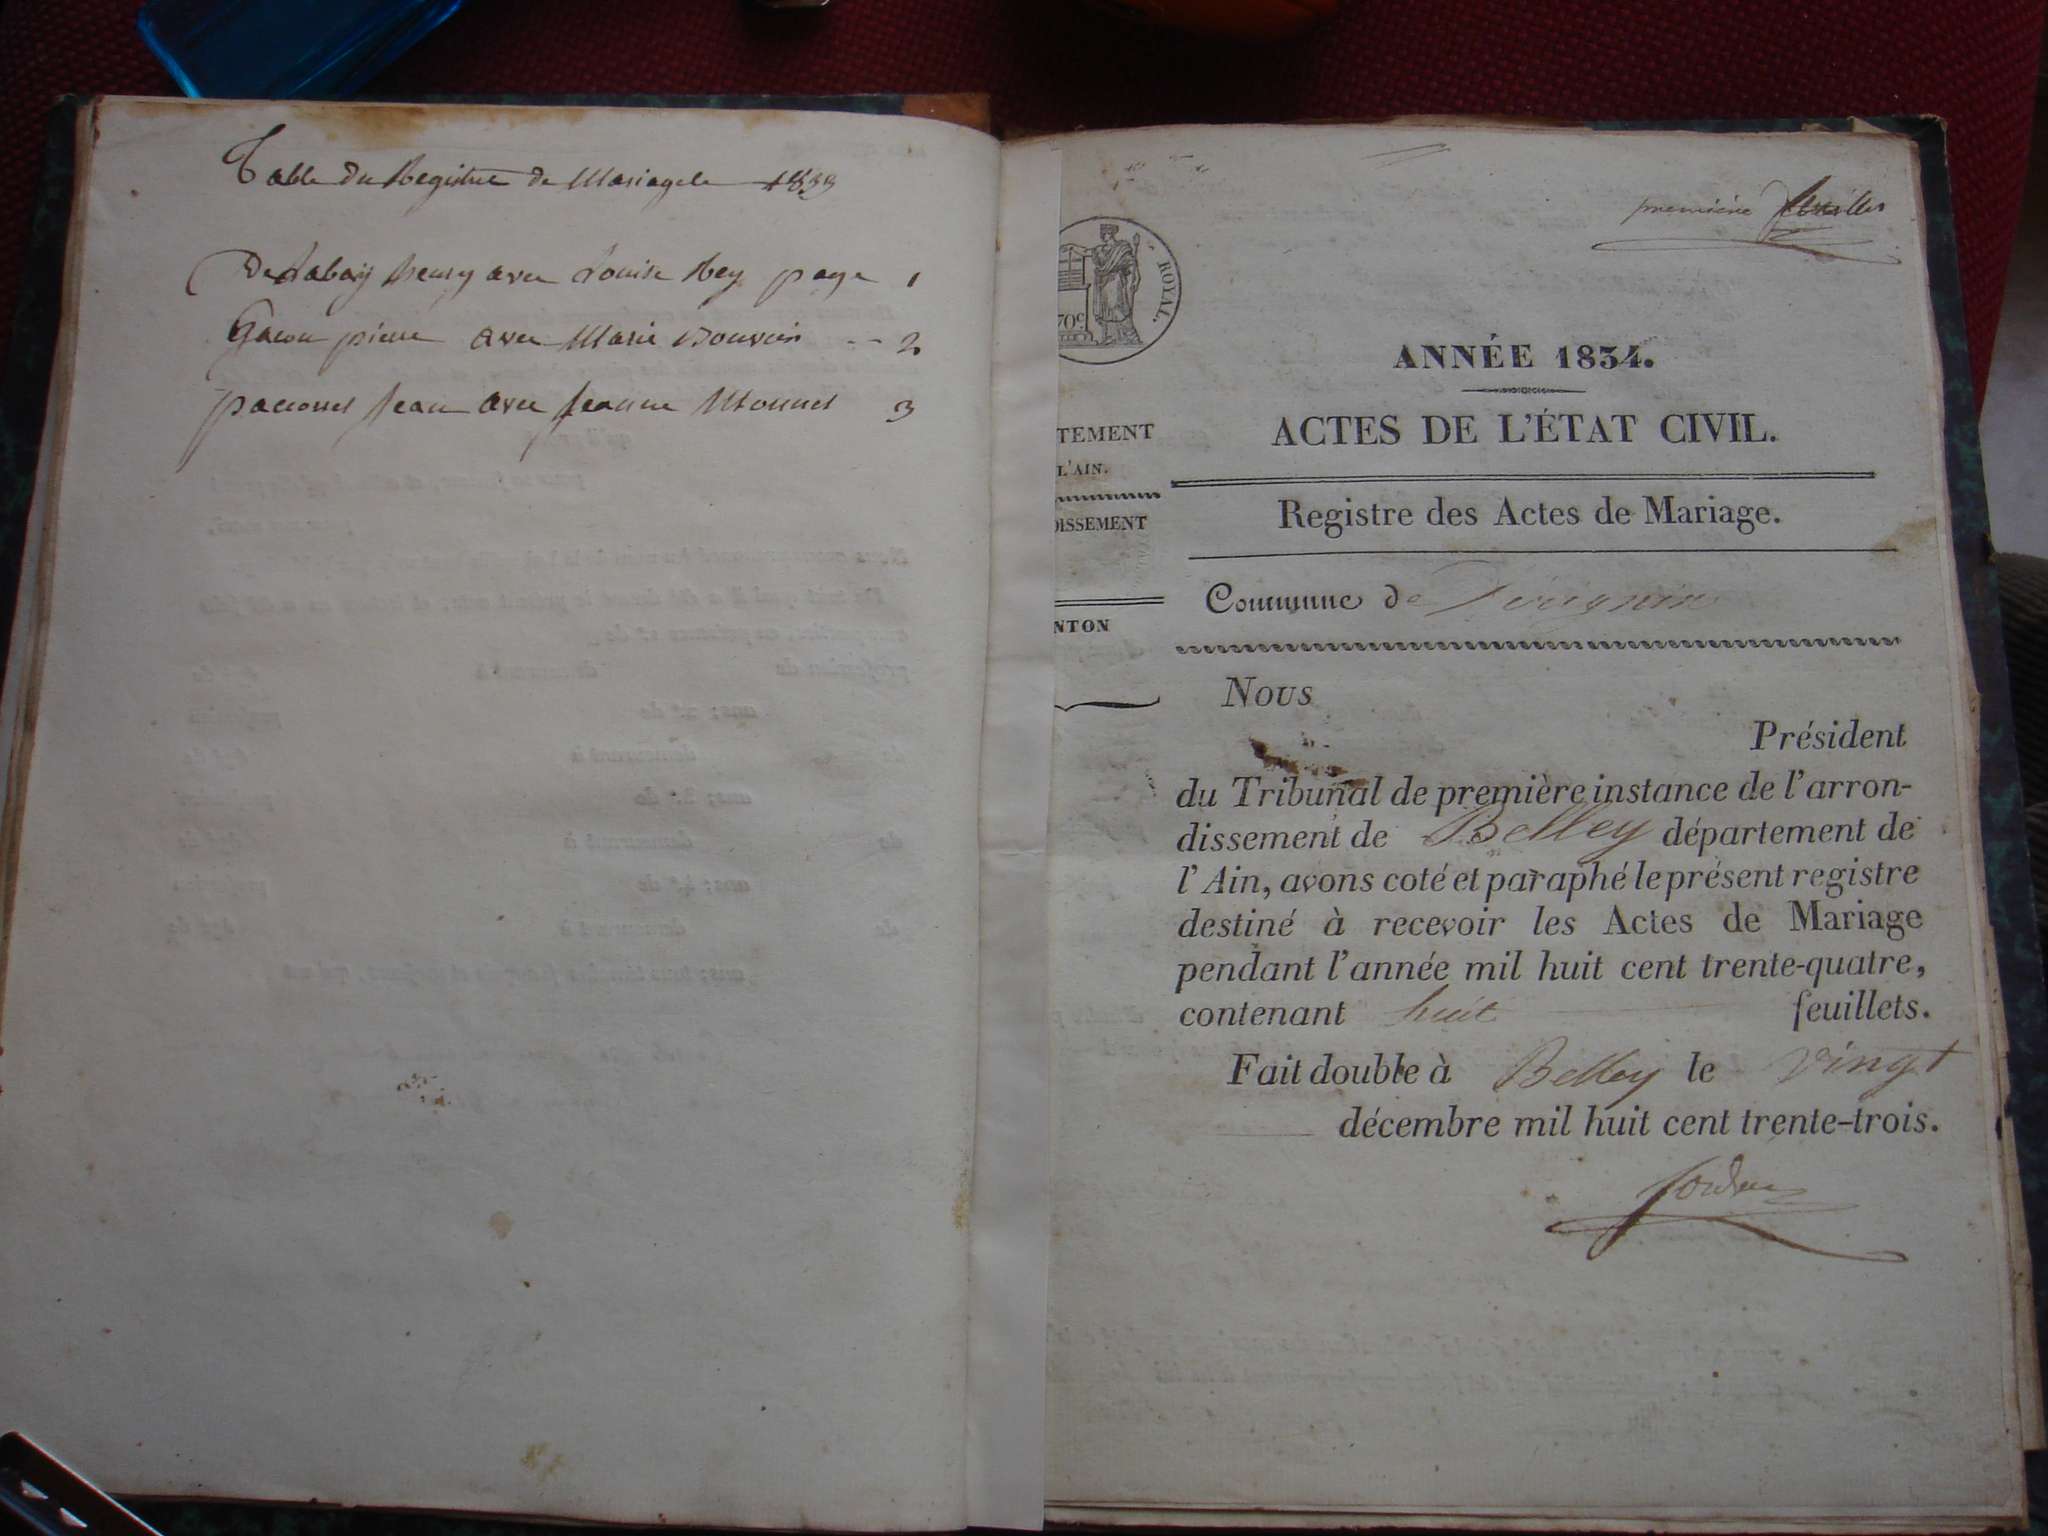 Table du Registre de Mariage de 1833
De Labaij henry avec Louise Rey page 1
Gacon pierre avec Marie Bouvier -- 2
paccouet Jean avec Jeanne Monnet 3
première feuillet
ROYAL.
70c
ANNÉE 1834.
TEMENT
L'AIN.
DISSEMENT
NTON
ACTES DE L'ÉTAT CIVIL.
Registre des Actes de Mariage.
Commune de
Nous
Président
du Tribunal de première instance de l'arron-
dissement de Belley département de
l'Ain, avons coté et paraphé le présent registre
destiné à recevoir les Actes de Mariage
pendant l'année mil huit cent trente-quatre,
contenant huit feuillets.
Fait double à Belley le vingt
décembre mil huit cent trente-trois.